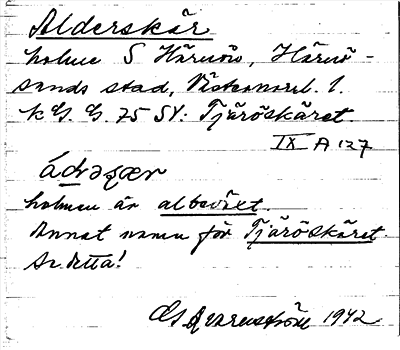 Alderskär
holme S Härnön, Härnö-
sands stad, Västernorrl. l.
k G. G. 75 SV. Tjäröskäret.
IX A 127
holmen är albeväxt.
Annat namn för Tjäröskäret.
Se detta!
1942